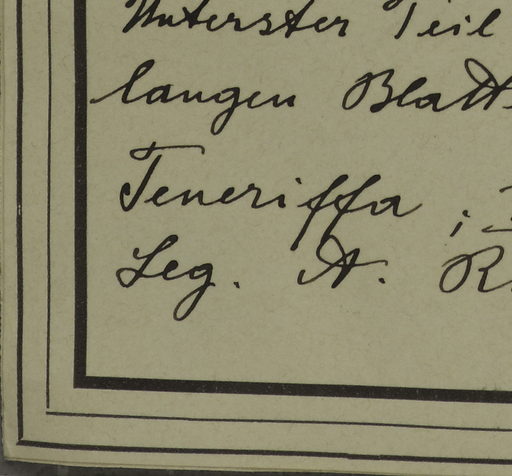 Unterster Teil
langen Blatt
Teneriffa ;
Leg. A. R